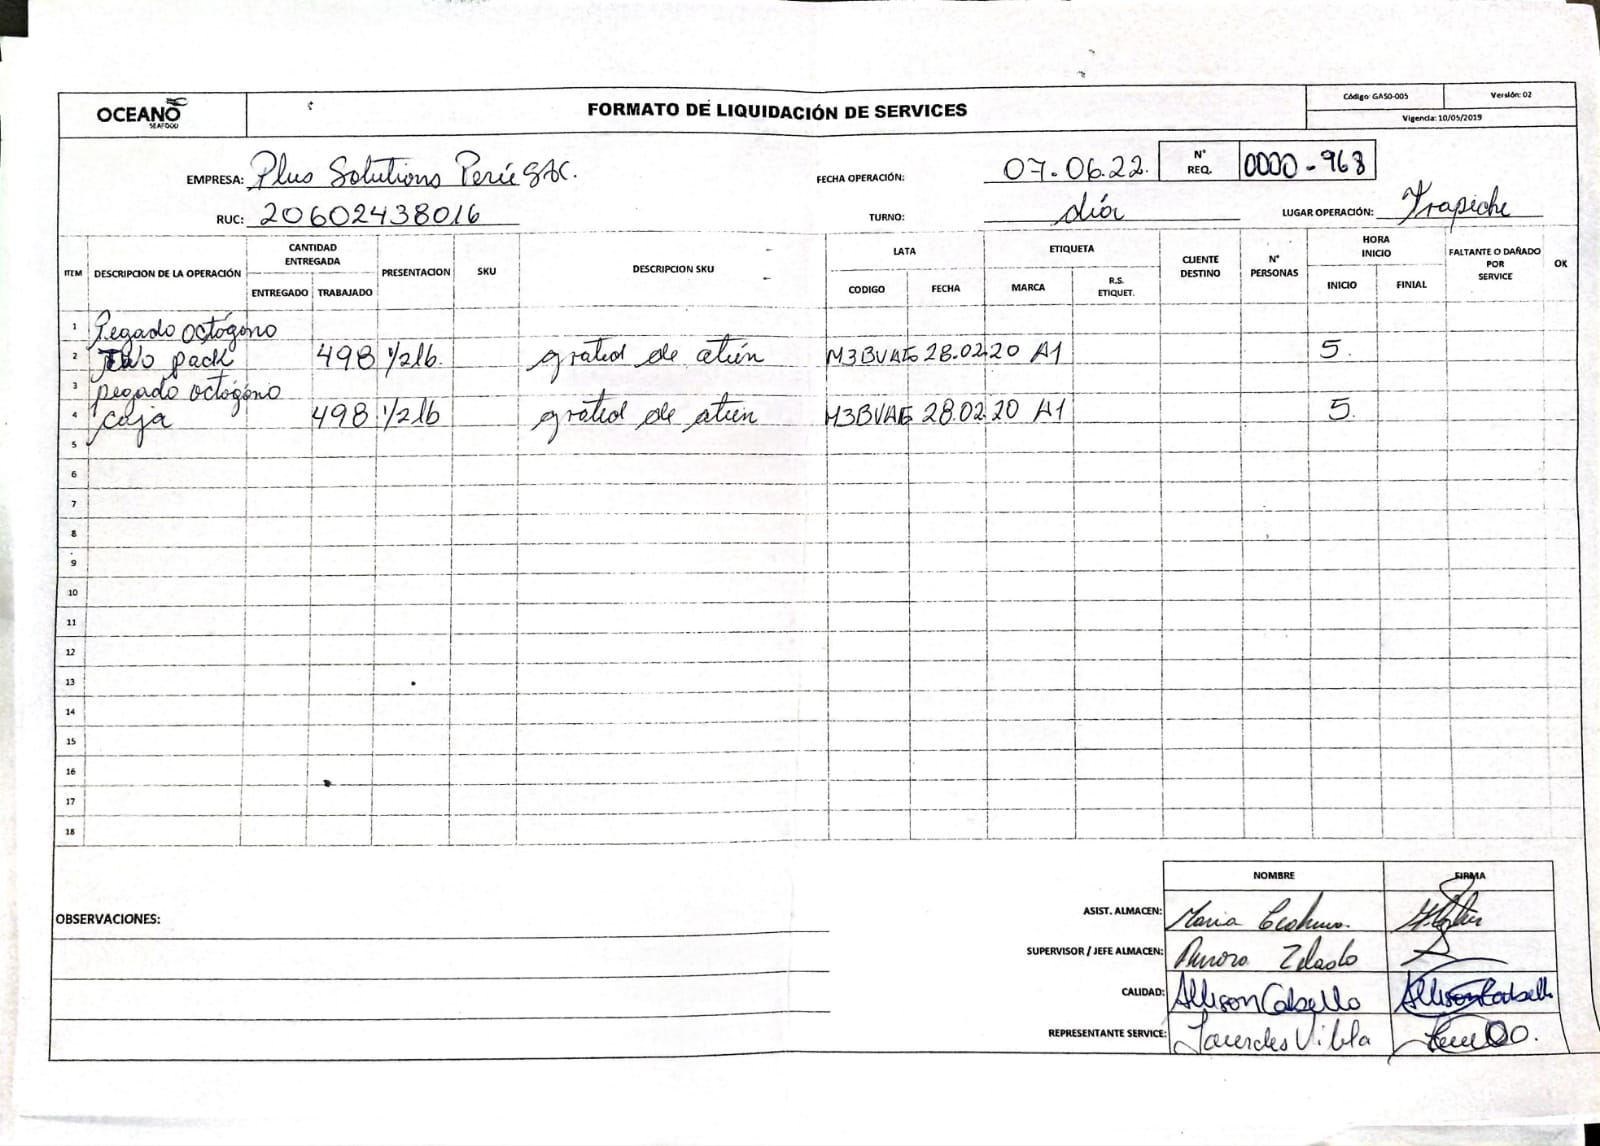 OCEANO
SEAFOOD
FORMATO DE LIQUIDACIÓN DE SERVICES
Código: GASO-005
Versión: 02
Vigencia: 10/05/2019
EMPRESA: Plus Solutions Perú SAC.
FECHA OPERACIÓN: 07.06.22.
N° REQ. 0000-968
RUC: 20602438016
TURNO: día
LUGAR OPERACIÓN: Trapiche
ITEM DESCRIPCION DE LA OPERACIÓN CANTIDAD ENTREGADA PRESENTACION SKU DESCRIPCION SKU LATA ETIQUETA CLIENTE DESTINO N° PERSONAS HORA INICIO FALTANTE O DAÑADO POR SERVICE OK
ENTREGADO TRABAJADO CODIGO FECHA MARCA R.S. ETIQUET. INICIO FINIAL
1 Pegado octógono
2 pack 498 1/2lb. grated de atún M3BVAE 28.02.20 A1 5.
3 pegado octógono
4 caja 498 1/2lb grated de atún M3BVAE 28.02.20 A1 5.
5
6
7
8
9
10
11
12
13
14
15
16
17
18
OBSERVACIONES:
NOMBRE FIRMA
ASIST. ALMACEN: Maria
SUPERVISOR / JEFE ALMACEN:
CALIDAD: Allison Cabello
REPRESENTANTE SERVICE: Lourdes